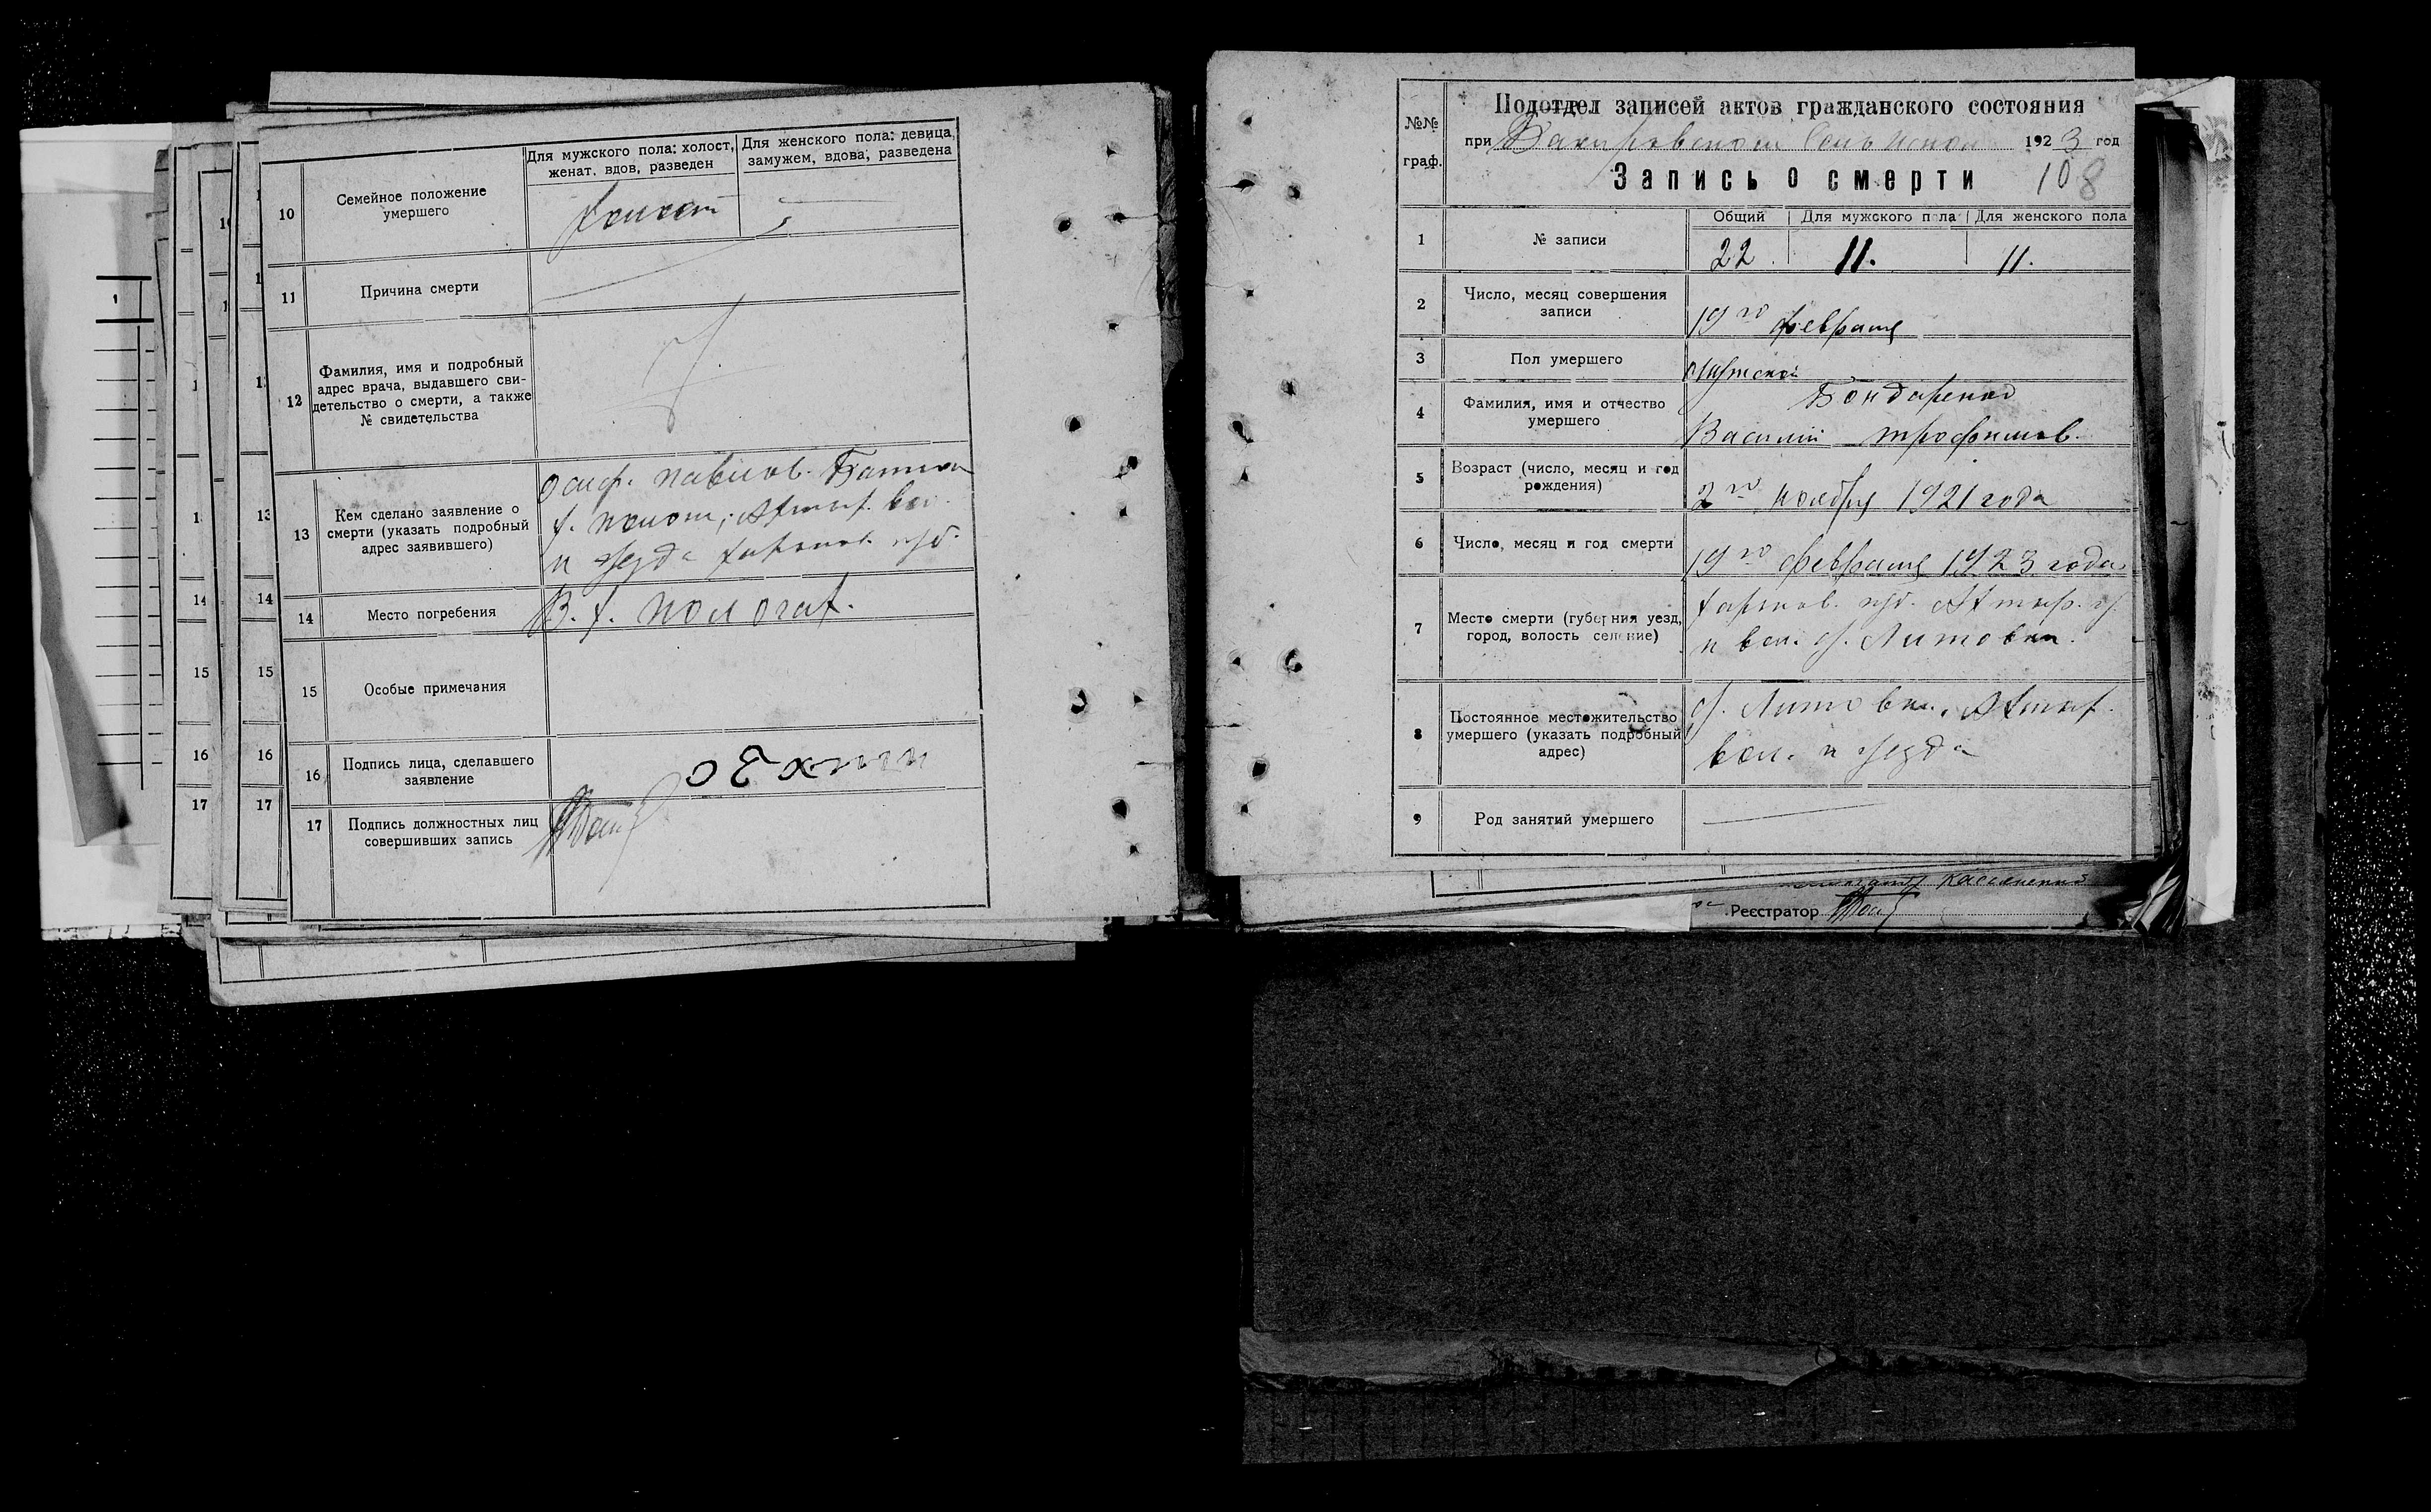 Семейное положение
умершего
Для мужского пола: холост,
женат, вдов, разведен
Для женского пола: девица,
замужем, вдова, разведена
10
холост
11
Причина смерти
12
Фамилия, имя и подробный
адрес врача, выдавшего сви-
детельство о смерти, а также
№ свидетельства
13
Кем сделано заявление о
смерти (указать подробный
адрес заявившего)
павлов.
вол.
и уезда харьков. губ.
14
Место погребения
В. х.
15
Особые примечания
16
Подпись лица, сделавшего
заявление
17
Подпись должностных лиц
совершивших запись
№№
граф.
Подотдел записей актов гражданского состояния
при 1923 год
Запись о смерти 108
1
№ записи
Общий
Для мужского пола
Для женского пола
22.
11.
11.
2
Число, месяц совершения
записи
19го февраля
3
Пол умершего
мужской
4
Фамилия, имя и отчество
умершего
Бондаренко
Василий трофимов.
5
Возраст (число, месяц и год
рождения)
2го ноября 1921 года
6
Число, месяц и год смерти
19го февраля 1923 года
7
Место смерти (губерния уезд,
город, волость селение)
харьков. губ. Ахтыр. у.
и вол. х. Литовки.
8
Постоянное местожительство
умершего (указать подробный
адрес)
х. Литовки, Ахтыр.
вол. и уезда
9
Род занятий умершего
Реєстратор
13
14
15
16
17
13
14
15
16
17